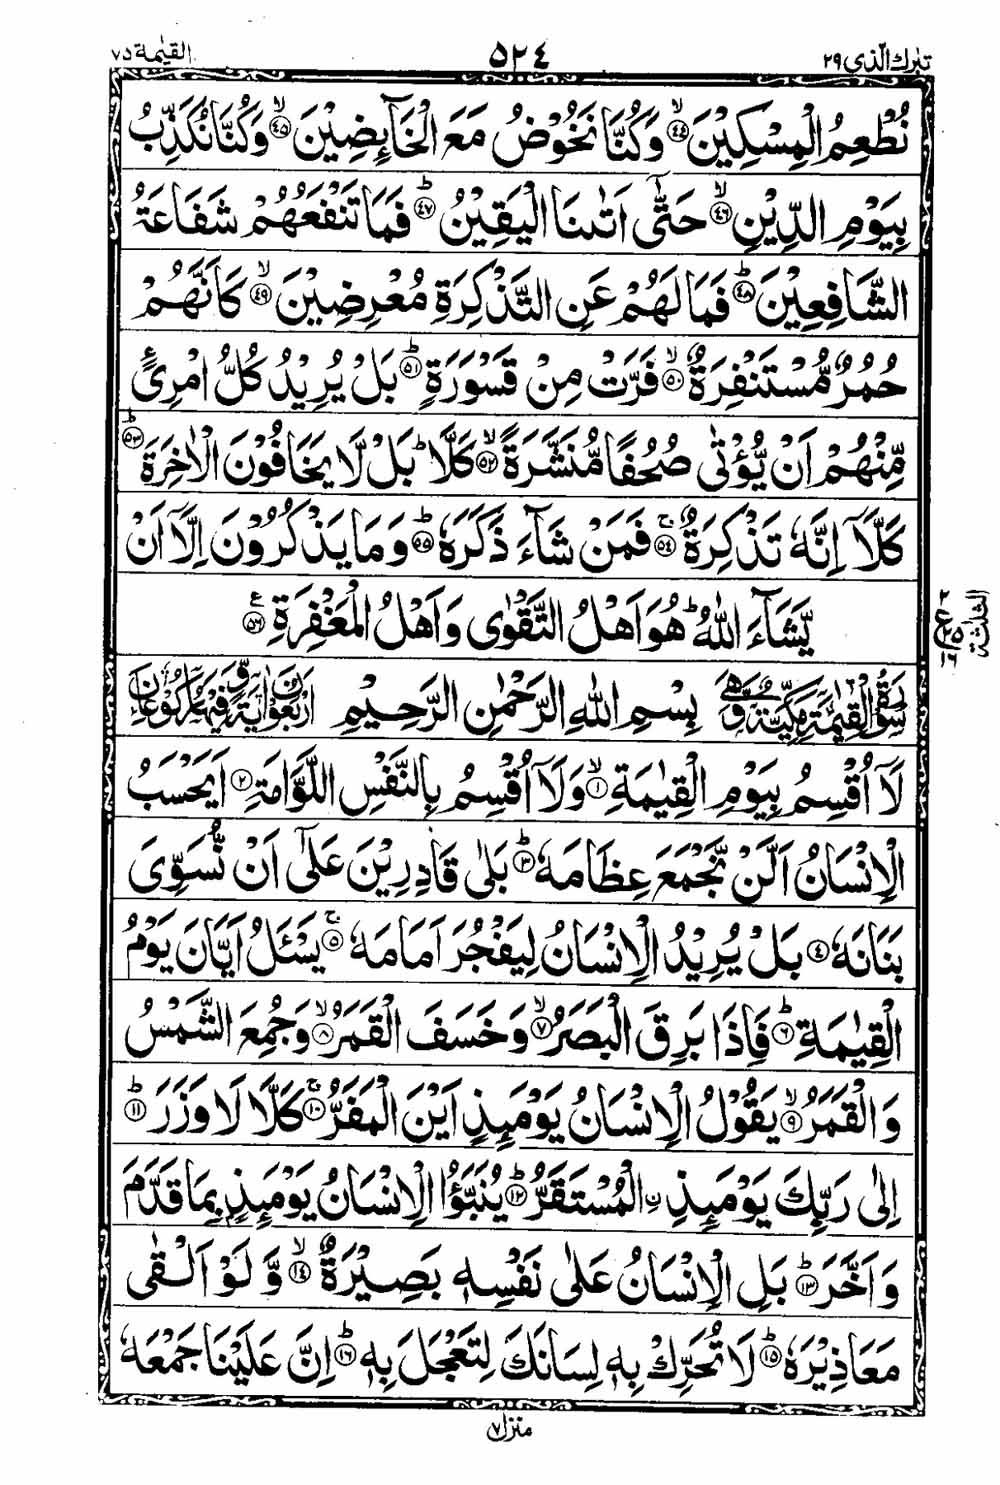 تبٰرك الّذى ٢٩ ٥٢٤ القيٰمة ٧٥
نُطْعِمُ الْمِسْكِيْنَ ۙ﴿٤٤﴾ وَكُنَّا نَخُوْضُ مَعَ الْخَآئِضِيْنَ ۙ﴿٤٥﴾ وَكُنَّا نُكَذِّبُ
بِيَوْمِ الدِّيْنِ ۙ﴿٤٦﴾ حَتّٰٓى اَتٰىنَا الْيَقِيْنُ ؕ﴿٤٧﴾ فَمَا تَنْفَعُهُمْ شَفَاعَةُ
الشَّافِعِيْنَ ؕ﴿٤٨﴾ فَمَا لَهُمْ عَنِ التَّذْكِرَةِ مُعْرِضِيْنَ ۙ﴿٤٩﴾ كَاَنَّهُمْ
حُمُرٌ مُّسْتَنْفِرَةٌ ۙ﴿٥٠﴾ فَرَّتْ مِنْ قَسْوَرَةٍ ؕ﴿٥١﴾ بَلْ يُرِيْدُ كُلُّ امْرِئٍ
مِّنْهُمْ اَنْ يُّؤْتٰى صُحُفًا مُّنَشَّرَةً ۙ﴿٥٢﴾ كَلَّا ؕ بَلْ لَّا يَخَافُوْنَ الْاٰخِرَةَ ؕ﴿٥٣﴾
كَلَّاۤ اِنَّهٗ تَذْكِرَةٌ ۚ﴿٥٤﴾ فَمَنْ شَآءَ ذَكَرَهٗ ؕ﴿٥٥﴾ وَمَا يَذْكُرُوْنَ اِلَّاۤ اَنْ
يَّشَآءَ اللّٰهُ ؕ هُوَ اَهْلُ التَّقْوٰى وَاَهْلُ الْمَغْفِرَةِ ﴿٥٦﴾
الثلثة
٢
ع
١٦
سُوْرَةُ الْقِيٰمَةِ مَكِّيَّةٌ وَّهِىَ بِسْمِ اللّٰهِ الرَّحْمٰنِ الرَّحِيْمِ اَرْبَعُوْنَ اٰيَةً وَّفِيْهَا رُكُوْعَانِ
لَاۤ اُقْسِمُ بِيَوْمِ الْقِيٰمَةِ ۙ﴿١﴾ وَلَاۤ اُقْسِمُ بِالنَّفْسِ اللَّوَّامَةِ ؕ﴿٢﴾ اَيَحْسَبُ
الْاِنْسَانُ اَلَّنْ نَّجْمَعَ عِظَامَهٗ ؕ﴿٣﴾ بَلٰى قَادِرِيْنَ عَلٰٓى اَنْ نُّسَوِّىَ
بَنَانَهٗ ﴿٤﴾ بَلْ يُرِيْدُ الْاِنْسَانُ لِيَفْجُرَ اَمَامَهٗ ۚ﴿٥﴾ يَسْئَلُ اَيَّانَ يَوْمُ
الْقِيٰمَةِ ؕ﴿٦﴾ فَاِذَا بَرِقَ الْبَصَرُ ۙ﴿٧﴾ وَخَسَفَ الْقَمَرُ ۙ﴿٨﴾ وَجُمِعَ الشَّمْسُ
وَالْقَمَرُ ۙ﴿٩﴾ يَقُوْلُ الْاِنْسَانُ يَوْمَئِذٍ اَيْنَ الْمَفَرُّ ۚ﴿١٠﴾ كَلَّا لَا وَزَرَ ؕ﴿١١﴾
اِلٰى رَبِّكَ يَوْمَئِذِ ۨالْمُسْتَقَرُّ ؕ﴿١٢﴾ يُنَبَّؤُا الْاِنْسَانُ يَوْمَئِذٍۢ بِمَا قَدَّمَ
وَاَخَّرَ ؕ﴿١٣﴾ بَلِ الْاِنْسَانُ عَلٰى نَفْسِهٖ بَصِيْرَةٌ ۙ﴿١٤﴾ وَّلَوْ اَلْقٰى
مَعَاذِيْرَهٗ ؕ﴿١٥﴾ لَا تُحَرِّكْ بِهٖ لِسَانَكَ لِتَعْجَلَ بِهٖ ؕ﴿١٦﴾ اِنَّ عَلَيْنَا جَمْعَهٗ
منزل ٧